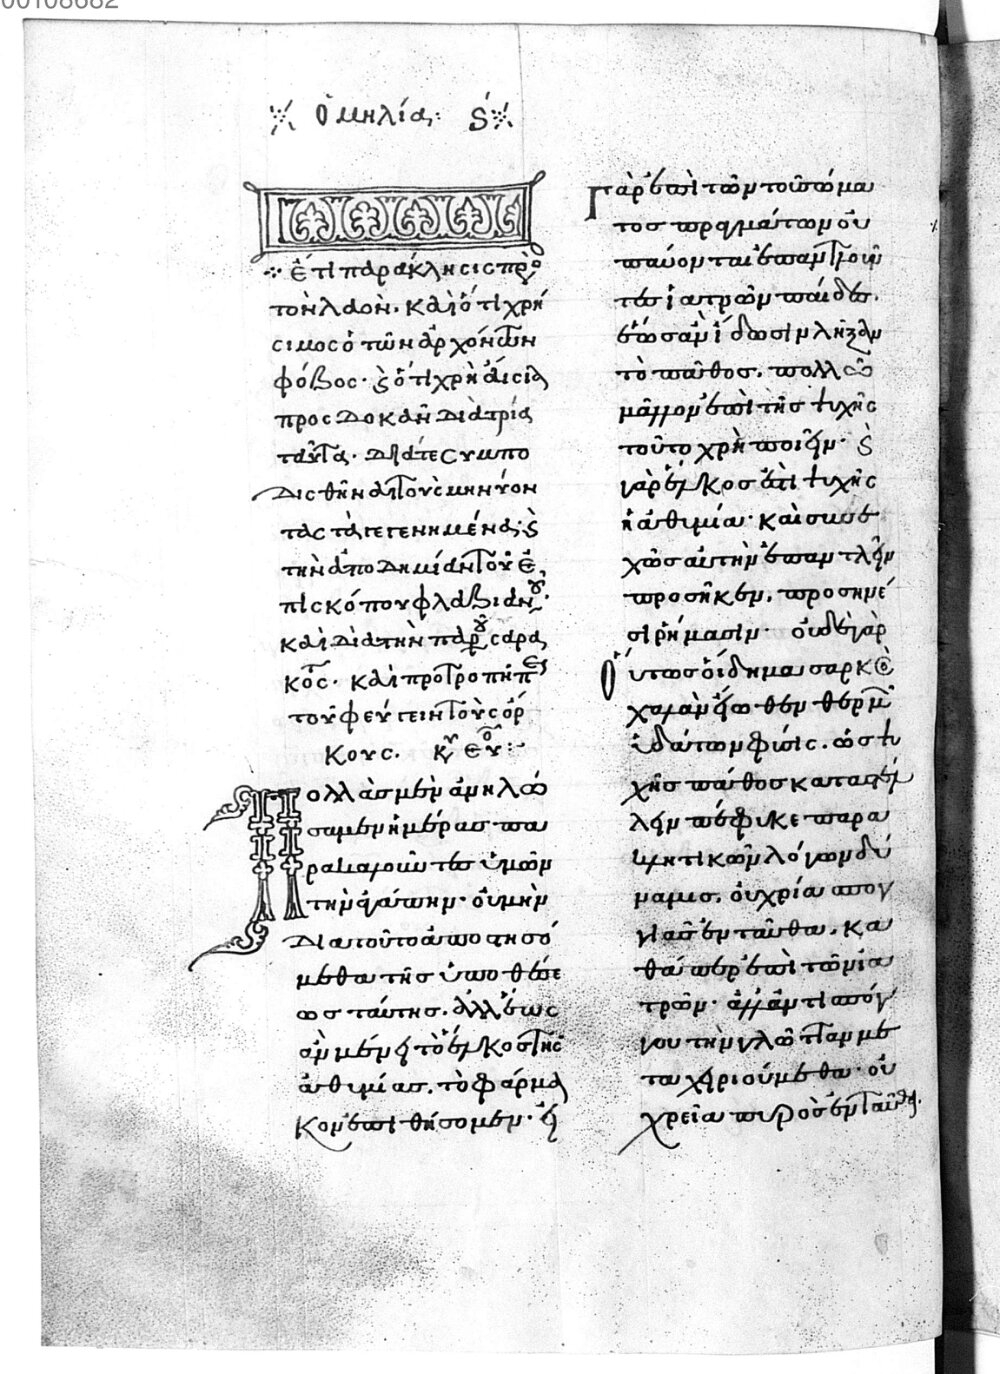 00108682
ὁμηλία: ϛ´
ἔτι παράκλησις πρὸ
τὸν λαὸν. καὶ ὅτι χρή
σιμος ὁ τῶν ἀρχόντων
φόβος· ϗ ὅτι χρὴ αἴσια
προσδοκᾶν διὰ τρία
ταῦτα. διά τε συμπο
δισθῆναι τοὺς μηνύον
τας τὰ γεγενημένα· ϗ
τὴν ἀποδημίαν τοῦ ἐ
πισκόπου φλαβιανοῦ·
καὶ διὰ τὴν παροῦσαν σαρα
κοστ. καὶ προτροπὴ π
τοῦ φεύγειν τοὺς ὅρ
κους. κυ ευ:
Πολλὰς μὲν ἀνηλώ
σαμεν ἡμέρας πα
ραμυθούμενοι τὴν ὑμῶν
τὴν ἀγάπην· οὐ μὴν
διὰ τοῦτο ἀποστησό
μεθα τῆς ὑποθέσε
ως ταύτης. ἀλλ' ἕως
ἂν μένῃ τὸ ἕλκος τῆς
ἀθυμίας, τὸ φάρμα
κον ἐπιθήσομεν· εἰ
γὰρ ἐπὶ τῶν τοῦ σώμα
τος τραυμάτων οὐ
παύονται ἐπαντλοῦν
τες ἰατρῶν παῖδες,
ἕως ἂν ἴδωσι λῆξαν
τὸ πάθος. πολλῶ
μᾶλλον ἐπὶ τῆς ψυχῆς
τοῦτο χρὴ ποιεῖν· ϗ
γὰρ ἕλκος ἐστὶ ψυχῆς
ἡ ἀθυμία· καὶ συνε
χῶς αὐτὴν ἐπαντλεῖν
προσῆκεν, προσηνέ
σι ῥήμασιν· οὐδὲ γὰρ
οὕτως οἴδημα σαρκὸς
χαλᾶν εἴωθεν θερμῶν
ὑδάτων φύσις. ὡς ψυ
χῆς πάθος καταστέλ
λειν πέφυκε παρα
κλητικῶν λόγων δύ
ναμις. οὐ χρεία σπογ
γιᾶς ἐνταῦθα, κα
θάπερ ἐπὶ τῶν ἰα
τρῶν· ἀλλ' ἀντὶ σπόγ
γου τὴν γλῶτταν με
ταχειριούμεθα· οὐ
χρεία πυρὸς ἐνταῦθα.